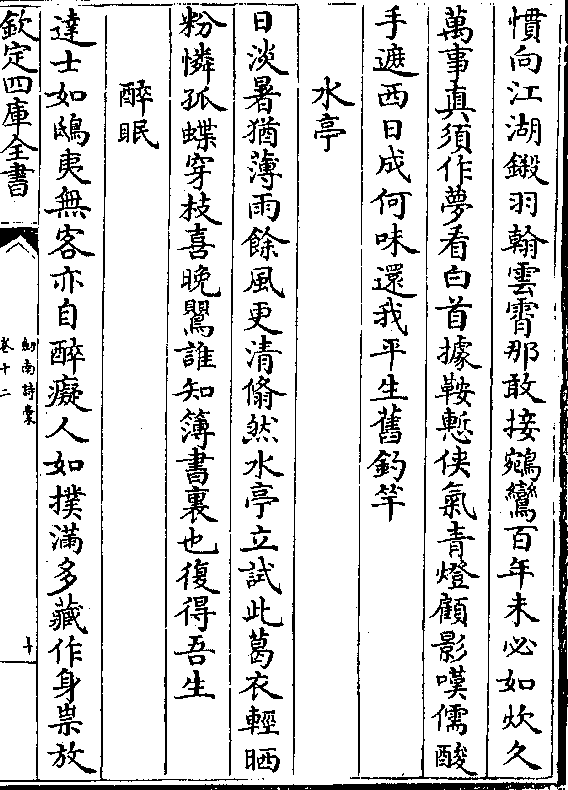 慣向江湖鎩羽翰雲霄那敢接鵷鸞百年未必如炊久
萬事真須作夢看白首據鞍慙俠氣青燈顧影嘆儒酸
手遮西日成何味還我平生舊釣竿
水亭
日淡暑猶薄雨餘風更清翛然水亭立試此葛衣輕晒
粉憐孤蝶穿枝喜晚鶯誰知簿書裏也復得吾生
醉眠
達士如鴟夷無客亦自醉癡人如撲滿多藏作身祟放
欽定四庫全書
劍南詩稾
卷十二
十